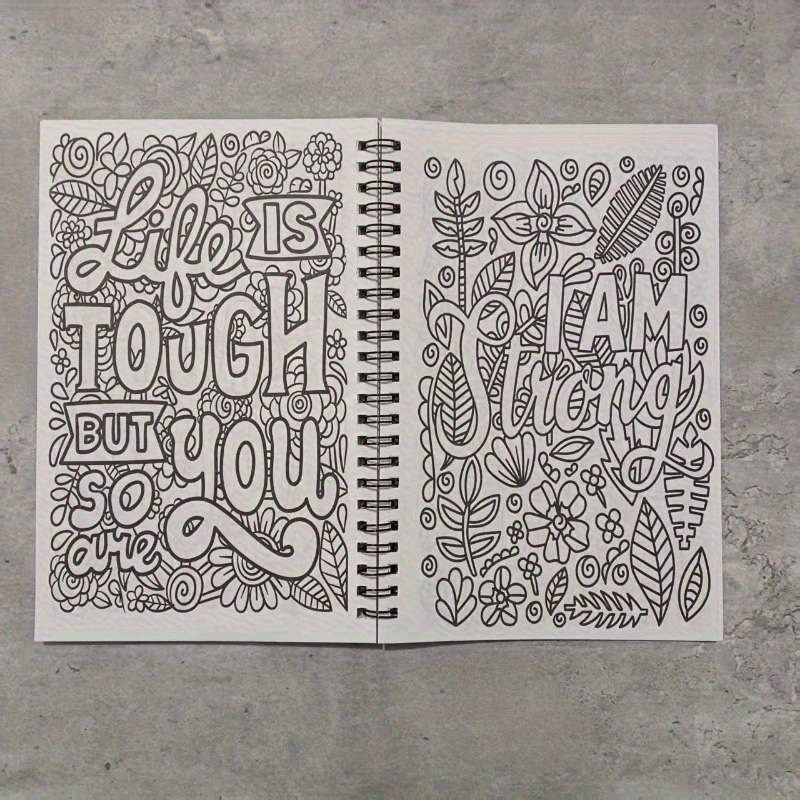 Life IS
TOUGH
BUT YOU
SO
are
I AM
Strong